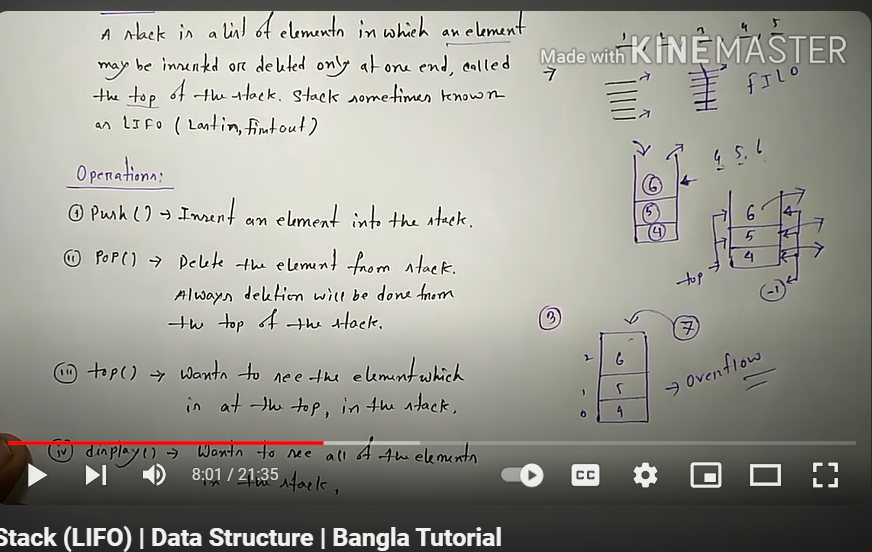 A stack is a list of elements in which an element
may be inserted or deleted only at one end, called
the top of the stack. Stack sometimes known
as LIFO (Last in, first out)
Operations:
(i) Push() → Insert an element into the stack.
(ii) POP() → Delete the element from stack.
Always deletion will be done from
the top of the stack.
(iii) top() → Wants to see the element which
is at the top, in the stack.
(iv) display() → Wants to see all of the elements
in the stack,
1 2 3 4 5
Made with KINEMASTER
→
FILO
4 5 6
6
5
4
6
5
4
top
-1
3
7
2 6
1 5
0 4
→ Overflow
8:01 / 21:35
CC
Stack (LIFO) | Data Structure | Bangla Tutorial